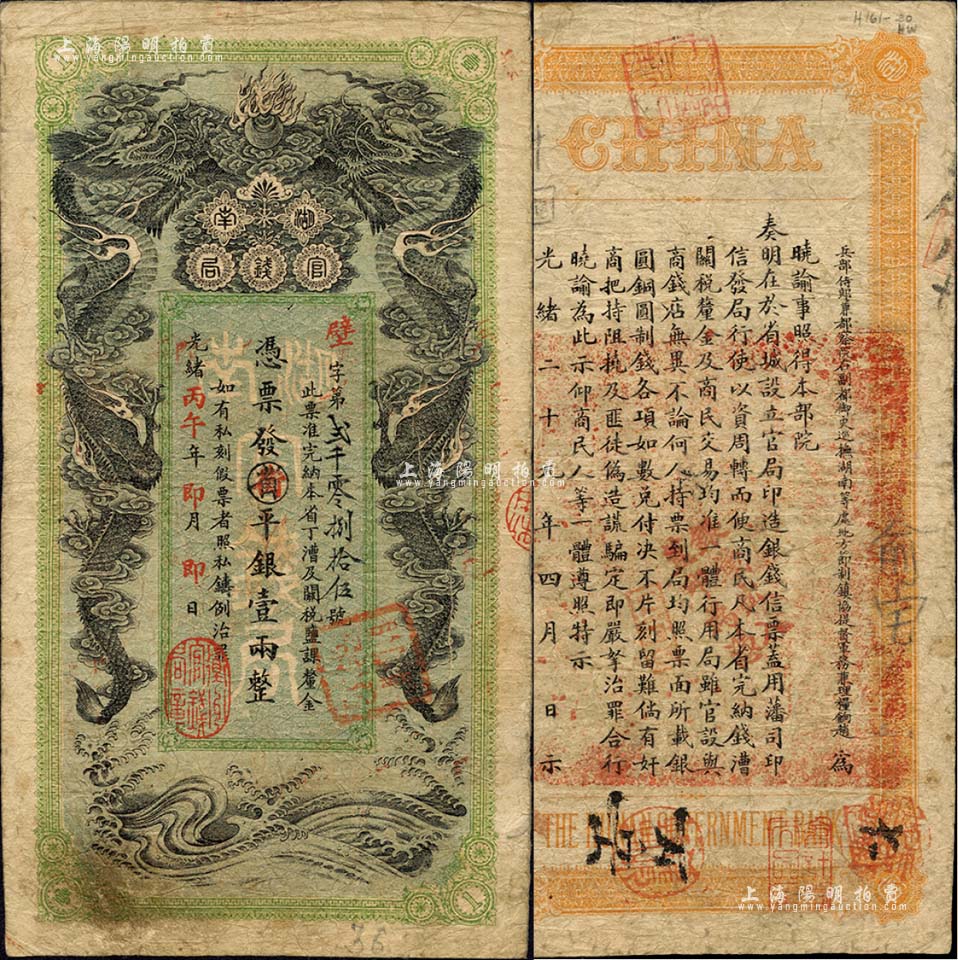 上海陽明拍賣
www.yangmingauction.com
湖南
官錢局
璧字第貳千零捌拾伍號
此票准完納本省丁漕及關稅鹽課釐金
憑票發省平銀壹兩整
如有私刻假票者照私鑄例治罪
光緒丙午年即月即日
1
1
36
上海陽明拍賣
www.yangmingauction.com
H161-30
HW
CHINA
兵部侍郎兼都察院右副都御史巡撫湖南等處地方節制鎮協提督軍務兼理糧餉趙為
曉諭事照得本部院
奏明在於省城設立官局印造銀錢信票蓋用藩司印
信發局行使以資周轉而便商民凡本省完納錢漕
關稅釐金及商民交易均准一體行用局雖官設與
商錢店無異不論何人持票到局均照票面所載銀
圓銅圓制錢各項如數兌付決不片刻留難倘有奸
商把持阻撓及匪徒偽造謊騙定即嚴拏治罪合行
曉諭為此示仰商民人等一體遵照特示
光緒二十九年四月日示
THE HUNAN GOVERNMENT BANK
上海陽明拍賣
www.yangmingauction.com